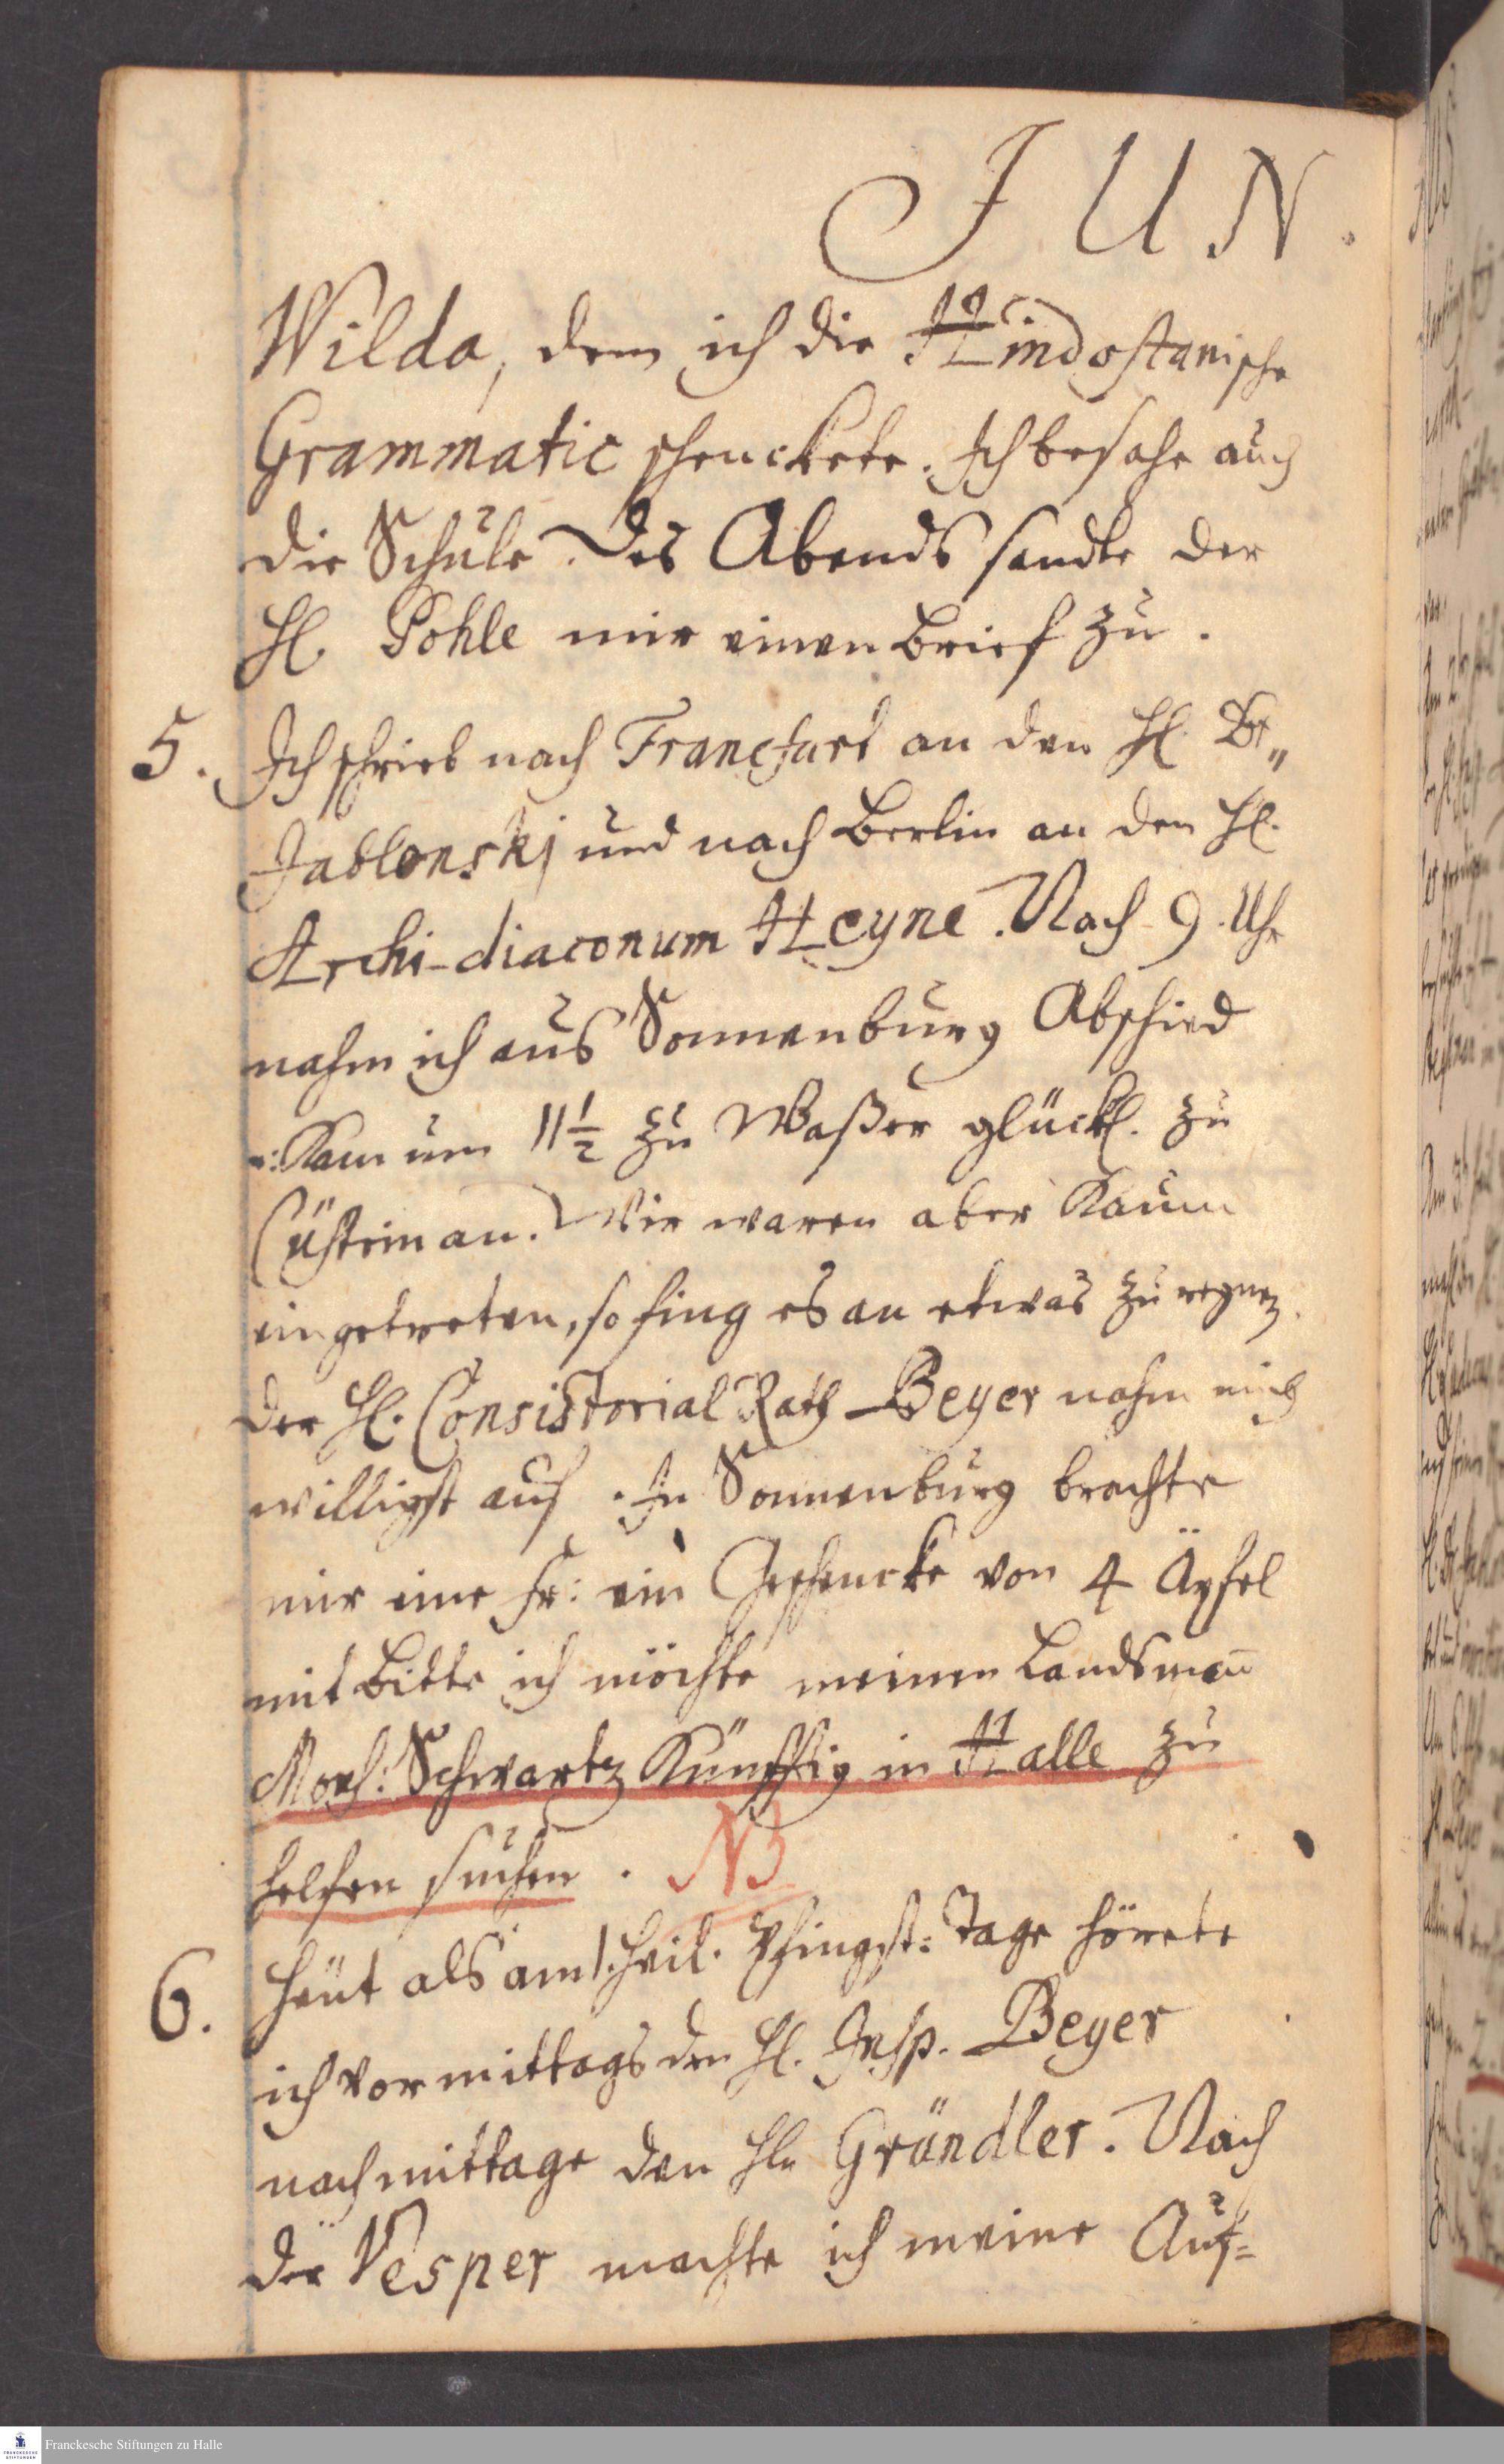 JUN.
Wilda, dem ich die Hindostanische
Grammatic schenckete. Ich besahe auch
die Schule. Des Abends sandte der
H. Pohle mir einen Brief zu.
5. Ich schrieb nach Francfurt an den H. Dr„
Jablonskj und nach Berlin an den H.
Archi-diaconum Heyne. Nach 9. Uhr
nahm ich aus Sonnenburg Abschied
Kam um 11 1/2 zu Waßer glückl. zu
Cüstrin an. Wir waren aber Kaum
eingetreten, so fing es an etwas zu regnen.
Der H. Consistorial Rath Beyer nahm mich
willigst auf. In Sonnenburg brachte
mir eine Fr: ein Geschencke von 4 Äpfel
mit Bitte ich möchte meinen Landsman̄
Mons: Schwartz Künfftig in Halle zu
helfen suchen. NB
6. Heut als am 1. heil. Pfingst= Tage hörete
ich vormittags den H. Insp. Beyer
nachmittage den Hln Gründler. Nach
der Vesper machte ich meine Auf=
Franckesche Stiftungen zu Halle